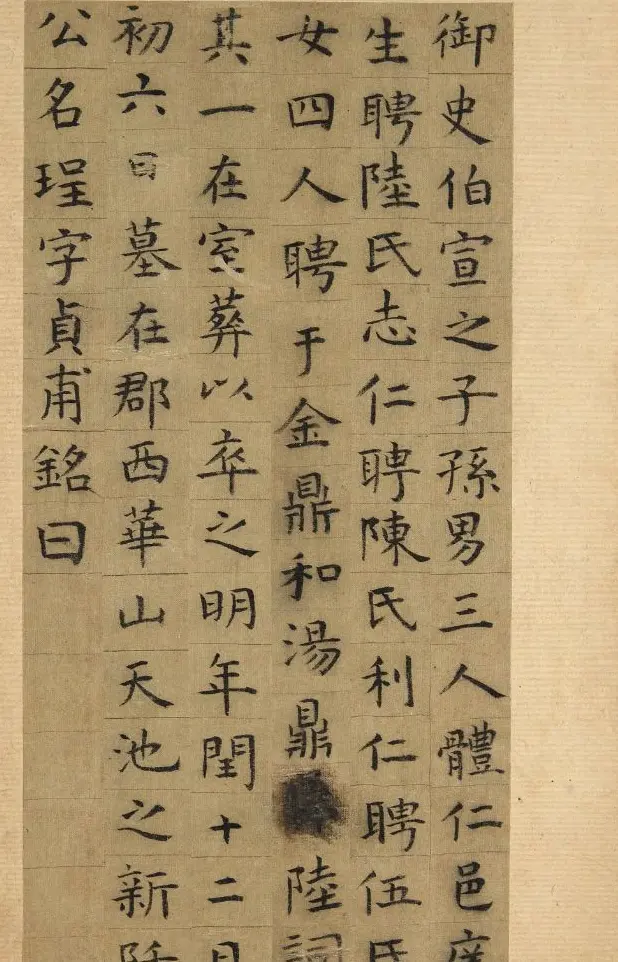 御史伯宣之子孫男三人體仁邑庠
生聘陸氏志仁聘陳氏利仁聘伍氏
女四人聘于金鼎和湯鼎陸詞
其一在室葬以卒之明年閏十二月
初六日墓在郡西華山天池之新阡
公名珵字貞甫銘曰